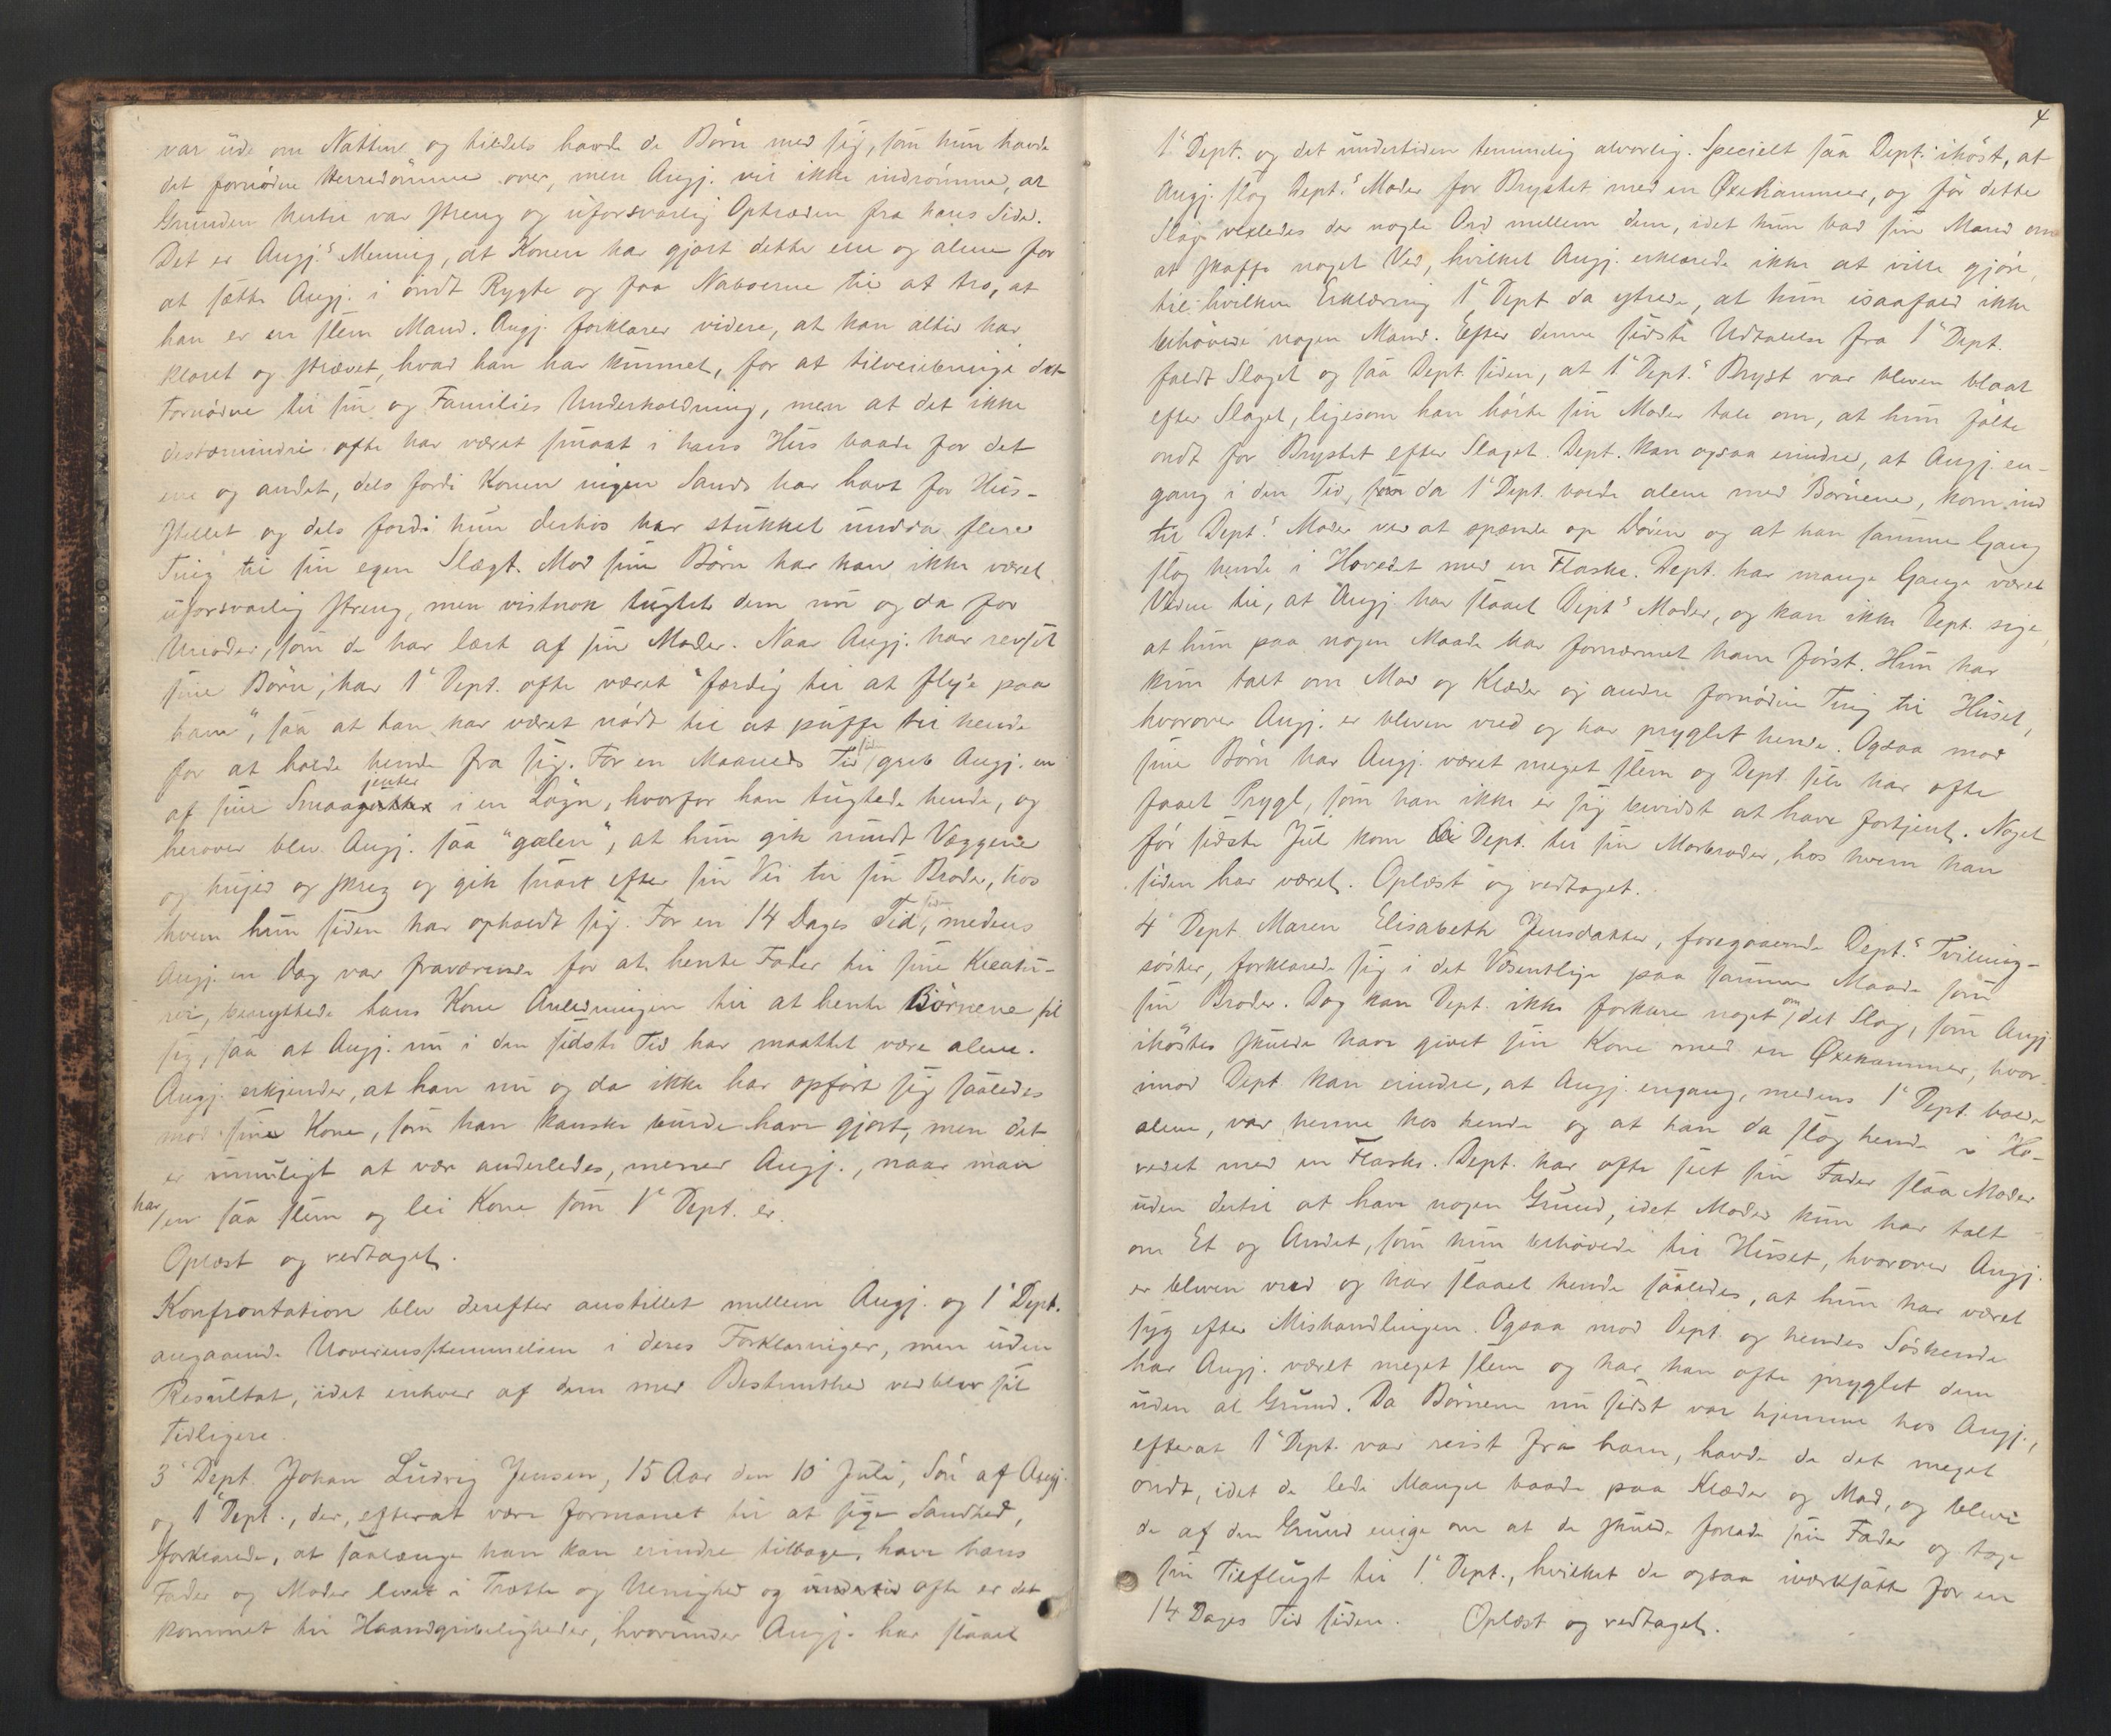 var ude om Natten og tildels havde de Børn med sig, som hun havde
det fornødne Herredømme over, men Angj. vil ikke indrømme, at
Grunden hertil var streng og uforsvarlig Optræden fra hans Side.
Det er Angj.s Mening, at Konen har gjort dette ene og alene for
at sætte Angj. i ondt Rygte og faa Naboerne til at tro, at
han er en slem Mand. Angj. forklarer videre, at han altid har
klaret og strævet, hvad han har kunnet, for at tilveiebringe det
Fornødne til sin og Families Underholdning, men at det ikke
destomindre ofte har været smaat i hans Hus baade for det
ene og andet, dels fordi Konen ingen Sands har havt for Hus-
stellet og dels fordi hun derhos har stukket undda flere
Ting til sin egen Slægt. Mod sine Børn har han ikke været
uforsvarlig streng, men vistnok tugtet dem nu og da for
Unoder, som de har lært af sin Moder. Naar Angj. har revset
sine Børn, har 1ste Dept. ofte været "færdig til at flyje paa
ham", saa at han har været nødt til at puffe til hende
for at holde hende fra sig. For en Maaneds Tid siden greb Angj. en
af sine Smaajenter i en Løgn, hvorfor han tugtede hende, og
herover blev Angj. saa "galen", at hun gik rundt Væggene
og hujed og skreg og gik snart efter sin Vei til sin Broder, hos
hvem hun siden har opholdt sig. For en 14 Dages Tid siden, medens
Angj. en Dag var fraværende for at hente Foder til sine Kreatu-
rer, benyttede hans Kone Anledningen til at hente Børnene til
sig, saa at Angj. nu i den sidste Tid har maattet være alene.
Angj. erkjender, at han nu og da ikke har opført sig saaledes
mod sin Kone, som han kanske burde have gjort, men det
er umuligt at være anderledes, mener Angj., naar man
har en saa slem og lei Kone som 1ste Dept. er.
Oplæst og vedtaget.
Konfrontation blev derefter anstillet mellem Angj. og 1ste Dept.
angaaende Uoverensstemmelsen i deres Forklaringer, men uden
Resultat, idet enhver af dem med Bestemthed vedblev sit
Tidligere.
3die Dept. Johan Ludvig Jensen, 15 Aar den 10de Juli, Søn af Angj.
og 1ste Dept., der, efterat være formanet til at sige Sandhed,
forklarede, at saalænge han kan erindre tilbage, have hans
Fader og Moder levet i Trætte og Uenighed og ofte er det
kommet til Haandgribeligheder, hvorunder Angj. har slaaet
4
1ste Dept. og det undertiden temmelig alvorlig. Specielt saa Dept. ihøst, at
Angj. slog Dept.s Moder for Brystet med en Øxehammer, og før dette
Slag vexledes der nogle Ord mellem dem, idet hun bad sin Mand om
at skaffe noget Ved, hvilket Angj. erklærede ikke at ville gjøre,
til hvilken Erklæring 1ste Dept. da ytrede, at hun isaafald ikke
behøvede nogen Mand. Efter denne sidste Udtalelse fra 1ste Dept.
faldt Slaget og saa Dept. siden, at 1ste Dept.s Bryst var bleven blaat
efter Slaget, ligesom han hørte sin Moder tale om, at hun følte
ondt for Brystet efter Slaget. Dept. kan ogsaa erindre, at Angj. en-
gang i den Tid, da 1ste Dept. boede alene med Børnene, kom ind
til Dept.s Moder ved at spænde op Døren og at han samme Gang
slog hende i Hovedet med en Flaske. Dept. har mange Gange været
Vidne til, at Angj. har slaaet Dept.s Moder, og kan ikke Dept. sige,
at hun paa nogen Maade har fornærmet ham først. Hun har
kun talt om Mad og Klæder og andre fornødne Ting til Huset,
hvorover Angj. er bleven vred og har pryglet hende. Ogsaa mod
sine Børn har Angj. været meget slem og Dept. selv har ofte
faaet Prygl, som han ikke er sig bevidst at have fortjent. Noget
før sidste Jul kom Dept. til sin Morbroder, hos hvem han
siden har været. Oplæst og vedtaget.
4de Dept. Maren Elisabeth Jensdatter, foregaaende Dept.s Tvilling-
søster, forklarede sig i det Væsentlige paa samme Maade som
sin Broder. Dog kan Dept. ikke forklare noget om det Slag, som Angj.
ihøstes skulde have givet sin Kone med en Øxehammer, hvor-
imod Dept. kan erindre, at Angj. engang, medens 1ste Dept. boede
alene, var henne hos hende og at han da slog hende i Ho-
vedet med en Flaske. Dept. har ofte seet sin Fader slaa Moder
uden dertil at have nogen Grund, idet Moder kun har talt
om Et og Andet, som hun behøvede til Huset, hvorover Angj.
er bleven vred og har slaaet hende saaledes, at hun har været
syg efter Mishandlingen. Ogsaa mod Dept. og hendes Søskende
har Angj. været meget slem og har han ofte pryglet dem
uden al Grund. Da Børnene nu sidst var hjemme hos Angj.,
efterat 1ste Dept. var reist fra ham, havde de det meget
ondt, idet de lede Mangel baade paa Klæder og Mad, og bleve
de af den Grund enige om at de skulde forlade sin Fader og tage
sin Tilflugt til 1ste Dept., hvilket de ogsaa iværksatte for en
14 Dages Tid siden. Oplæst og vedtaget.